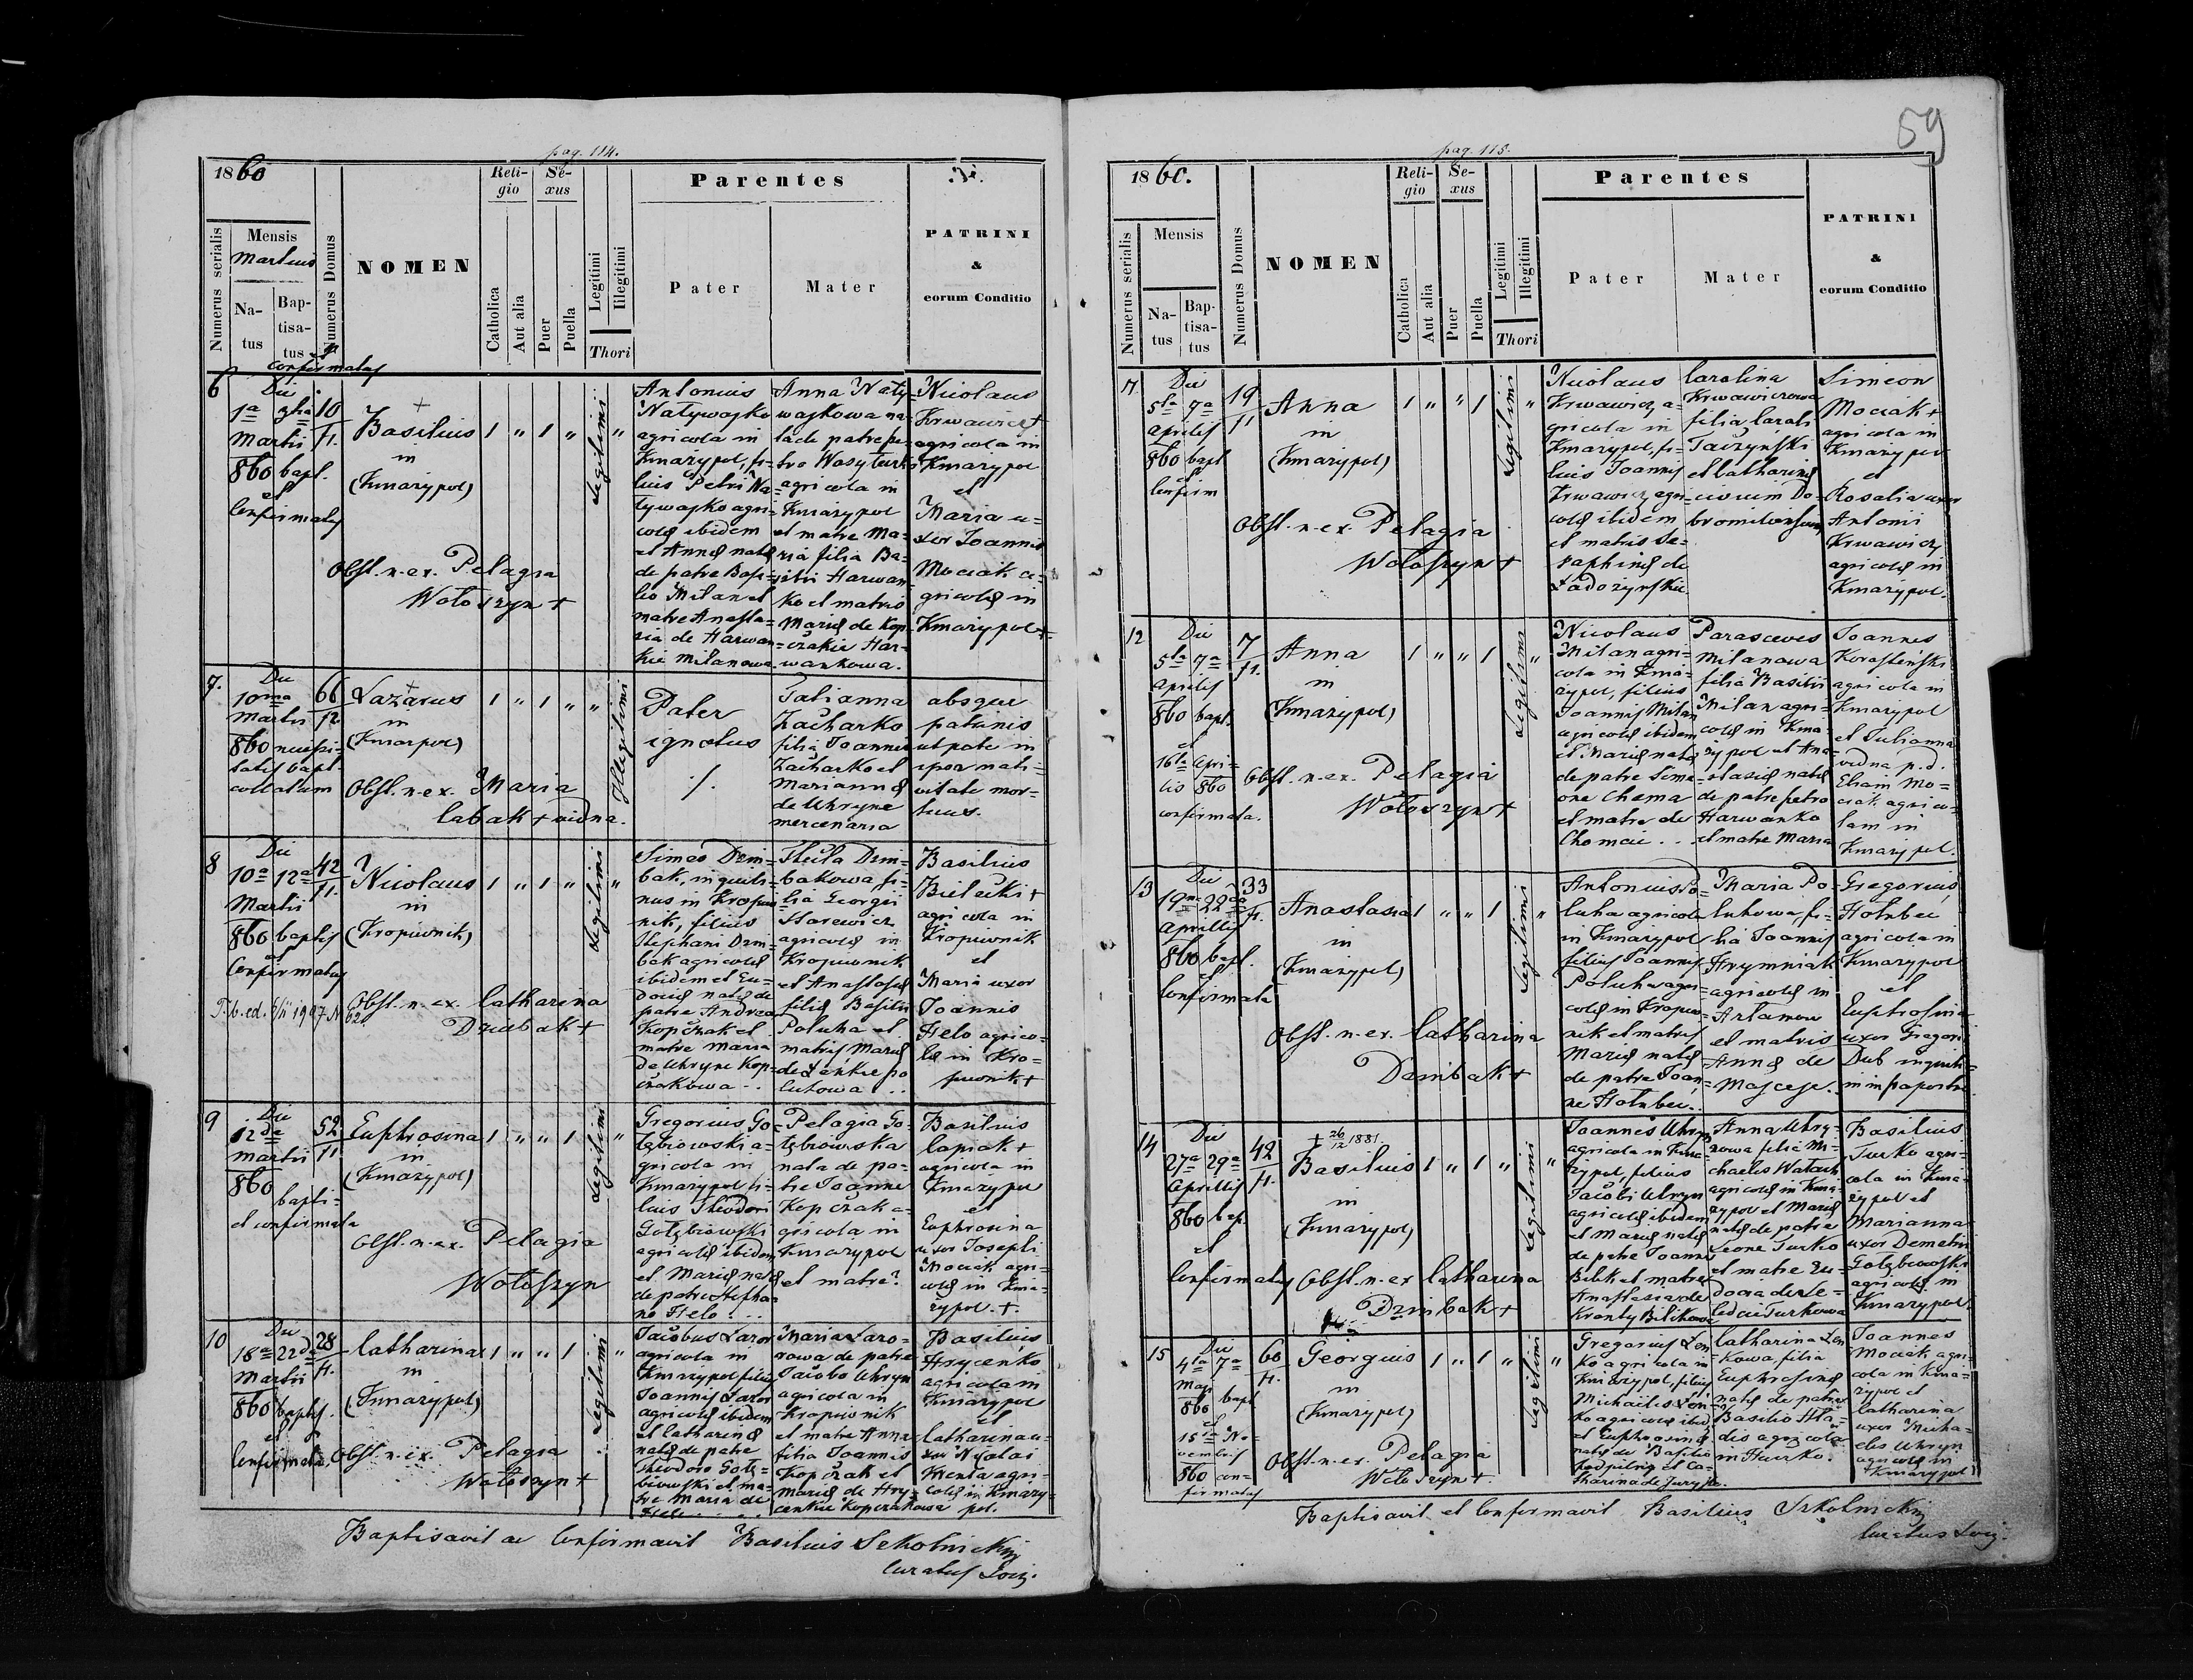 59
pag. 114.
1860
Numerus serialis
Mensis
Martius
Natus
Baptisatus
Numerus Domus
NOMEN
Religio
Catholica
Aut alia
Sexus
Puer
Puella
Legitimi
Illegitimi
Thori
Parentes
Pater
Mater
PATRINI
&
eorum Conditio
et
confirmatus
6
Die
1a
Martii
860 bapt.
et
Confirmatus
10
Basilius 1 " 1 "
in
(Kniażypol)
Obst. n. ex. Pelagia
Wołoszyn +
Legitimi "
Antonius
Natywajko
agricola in
Kniażypol, fi-
lius Petri Na-
tywajko agri-
colæ ibidem
et Annæ natæ
de patre Basi-
lio Milan et
matre Anasta-
sia de Harwan-
kie Milanowa
Anna Naty-
wajkowa na-
ta de patre pe-
tro
agricola in
Kniażypol
et matre Ma-
ria filia Ba-
silii Harwan-
ko et matris
Mariæ de Kop-
czakie Har-
wankowa.
Nicolaus
Krwawicz +
agricola in
Kniażypol
et
Maria u-
xor Joannis
Mociak a-
gricolæ in
Kniażypol +
7.
Die
10ma
Martii
860
bapt.
collatum
66
Lazarus 1 " 1 " "
in
(Kniażpol)
Obst. n. ex. Maria
Cabak + vidua.
Illegitimi
Pater
ignotus
./.
Tatianna
Zacharko
filia Joannis
Zacharko et
Mariannæ
de Uhryne
mercenaria
absque
patrinis
utpote in
ipso nati-
vitate mor-
tuus.
8
Die
10a 12a
Martii
860 baptis
et
Confirmatus
42
11.
Nicolaus 1 " 1 "
in
(Kropiwnik)
Obst. n. ex. Catharina
Dzimbak +
Legitimi "
Simeo Dzim-
bak, inquili-
nus in Kropiw-
nik, filius
Stephani Dzim-
bak agricolæ
ibidem et Eu-
dociæ natæ de
patre Andrea
Kopczak et
matre Maria
de Uhryne Kop-
czakowa ..
Thecla Dzim-
bakowa fi-
lia Georgii
Starewicz
agricolæ in
Kropiwnik
et Anastasiæ
filiæ Basilii
Poluha et
matris Mariæ
Basilius
Bielecki +
agricola in
Kropiwnik
et
Maria uxor
Joannis
Felo agrico-
læ in Kro-
piwnik +
9
Die
12da
Martii
860
bapti-
et confirmata
52
11.
Euphrosina 1 " " 1
in
(Kniażypol)
Obst. n. ex. Pelagia
Wołoszyn
Legitimi "
Gregorius Go-
łębiowski a-
gricola in
Kniażypol fi-
lius Theodori
Gołębiowski
agricolæ ibidem
et Mariæ natæ
de patre Stepha-
no Felo ...
Pelagia Go-
łębiowska
nata de pa-
tre Joanne
Kopczak a-
gricola in
Kniażypol
et matre?
Basilius
Capiak +
agricola in
Kniażypol
et
Euphrosina
uxor Josephi
Mociak agri-
colæ in Knia-
żypol. +.
10
Die
18a 22da
Martii
860 baptis.
et
Confirmata.
28
11.
Catharina 1 " " 1
in
(Kniażypol)
Obst. n. ex. Pelagia
Wołoszyn +
Legitimi "
Jacobus Łazor
agricola in
Kniażypol filius
Joannis Łazor
agricolæ ibidem
et Catharinæ
natæ de patre
Theodoro Gołę-
biowski et ma-
tre Maria de
Felo
Maria Łazo-
rowa de patre
Jacobo Uhryn
agricola in
Kropiwnik
et matre Anna
filia Joannis
Kopczak et
Mariæ de Hry-
cenkie Kopczakowa
Basilius
Hrycenko
agricola in
Kniażypol
et
Catharina u-
xor Nicolai
agri-
colæ in Kniaży-
pol.
Baptisavit ac Confirmavit Basilius Szkolnickij
Curatus Loci.
pag. 115.
1860.
Numerus serialis
Mensis
Natus
Baptisatus
Numerus Domus
NOMEN
Religio
Catholica
Aut alia
Sexus
Puer
Puella
Legitimi
Illegitimi
Thori
Parentes
Pater
Mater
PATRINI
&
eorum Conditio
Die
5ta 7a
Aprilis
860 bapt
et
Confirm
19
11
Anna 1 " " 1
in
(Kniażypol)
Obst. n. ex. Pelagia
Wołoszyn +
Legitimi "
Nicolaus
Krwawicz, a-
gricola in
Kniażypol, fi-
lius Joannis
Krwawicz agri-
colæ ibidem
et matris Se-
raphinæ de
Carolina
Krwawiczowa
filia Caroli
et Catharinæ
civium Do-
Simeon
Mociak +
agricola in
Kniażypol
et
Rosalia uxor
Antonii
Krwawicz
agricolæ in
Kniażypol.
12
Die
5ta 7a
Aprilis
860 bapt.
et
16ta Apri-
lis 860
confirmata.
7
11.
Anna 1 " " 1
in
(Kniażypol)
Obst. n. ex. Pelagia
Wołoszyn +
Legitimi "
Nicolaus
Milan agri-
cola in Knia-
żypol, filius
Joannis Milan
agricolæ ibidem
et Mariæ natæ
de patre Sime-
one Choma
et matre de
Chomie . .
Parasceves
Milanowa
filia Basilii
Milan agri-
colæ in Knia-
żypol et Ana-
stasiæ natæ
de patre petro
Harwanko
et matre Maria
Joannes
agricola in
Kniażypol
et Julianna
vidua p. d.
Eliam Mo-
ciak agrico-
lam in
Kniażypol.
13
Die
19na 22da
Aprilis
860 bapt.
et
Confirmata
33
11.
Anastasia 1 " " 1
in
(Kniażypol)
Obst. n. ex. Catharina
Dzimbak +
Legitimi "
Antonius Po-
luha agricola
in Kniażypol
filius Joannis
Poluha agri-
colæ in Kropiw-
nik et matris
Mariæ natæ
de patre Joan-
ne Hołubec.
Maria Po-
luhowa, fi-
lia Joannis
Hrymniak
agricolæ in
et matris
Annæ de
Gregorius
Hołubec
agricola in
Kniażypol
et
Euphrosina
uxor Gregorii
Dub inquili-
14
Die
27a 29a
Aprilis
860 bap.
et
Confirmatus
42
11.
+ 26/12 1881
Basilius 1 " 1 "
in
(Kniażypol)
Obst. n. ex Catharina
Dzimbak +
Legitimi "
Joannes Uhryn
agricola in Knia-
żypol, filius
Jacobi Uhryn
agricolæ ibidem
et Mariæ natæ
de patre Joanne
Bilik et matre
Anastasia de
Anna Uhry-
nowa filia Mi-
chaelis
agricolæ in Knia-
żypol et Mariæ
natæ de patre
Leone Turko
et matre Eu-
docia
Turkowa
Basilius
Turko agri-
cola in Knia-
żypol et
Marianna
uxor Demetrii
Gołębiowski
agricolæ in
Kniażypol.
15
Die
4ta 7a
Maji
860 bapt
et
15ta No-
vembris
860 con-
firmatus
60
11.
Georgius 1 " 1 "
in
(Kniażypol)
Obst. n. ex. Pelagia
Wołoszyn +.
Legitimi "
Gregorius
agricola in
Kniażypol, filius
Michaelis
agricolæ ibid.
et Euphrosinæ
natæ de Basilio
et Ca-
tharina de
Catharina
filia
Euphrosinæ
natæ de patre
Basilio
agricola
Joannes
Mociak agri-
cola in Knia-
żypol et
Catharina
uxor Micha-
elis Uhryn
agricolæ in
Kniażypol
Baptisavit et Confirmavit Basilius Szkolnickij
Curatus Loci.